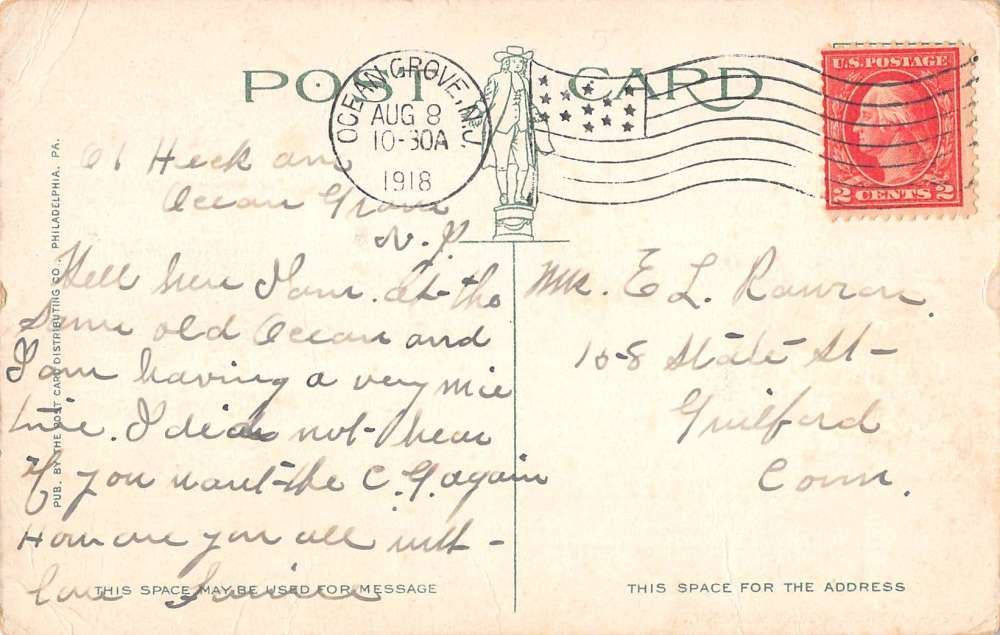 POST CARD
OCEAN GROVE, N.J.
AUG 8
10-30A
1918
U.S. POSTAGE
2 CENTS 2
61 Heck ave
Ocean Grove
N. J.
Well here I am. At the
same old Ocean and
I am having a very nice
time. I did not hear
if you want the C. G. again
How are you all with
love
Mr. E L.
State St
Guilford
Conn.
THIS SPACE MAY BE USED FOR MESSAGE
THIS SPACE FOR THE ADDRESS
PUB. BY THE POST CARD DISTRIBUTING CO., PHILADELPHIA, PA.